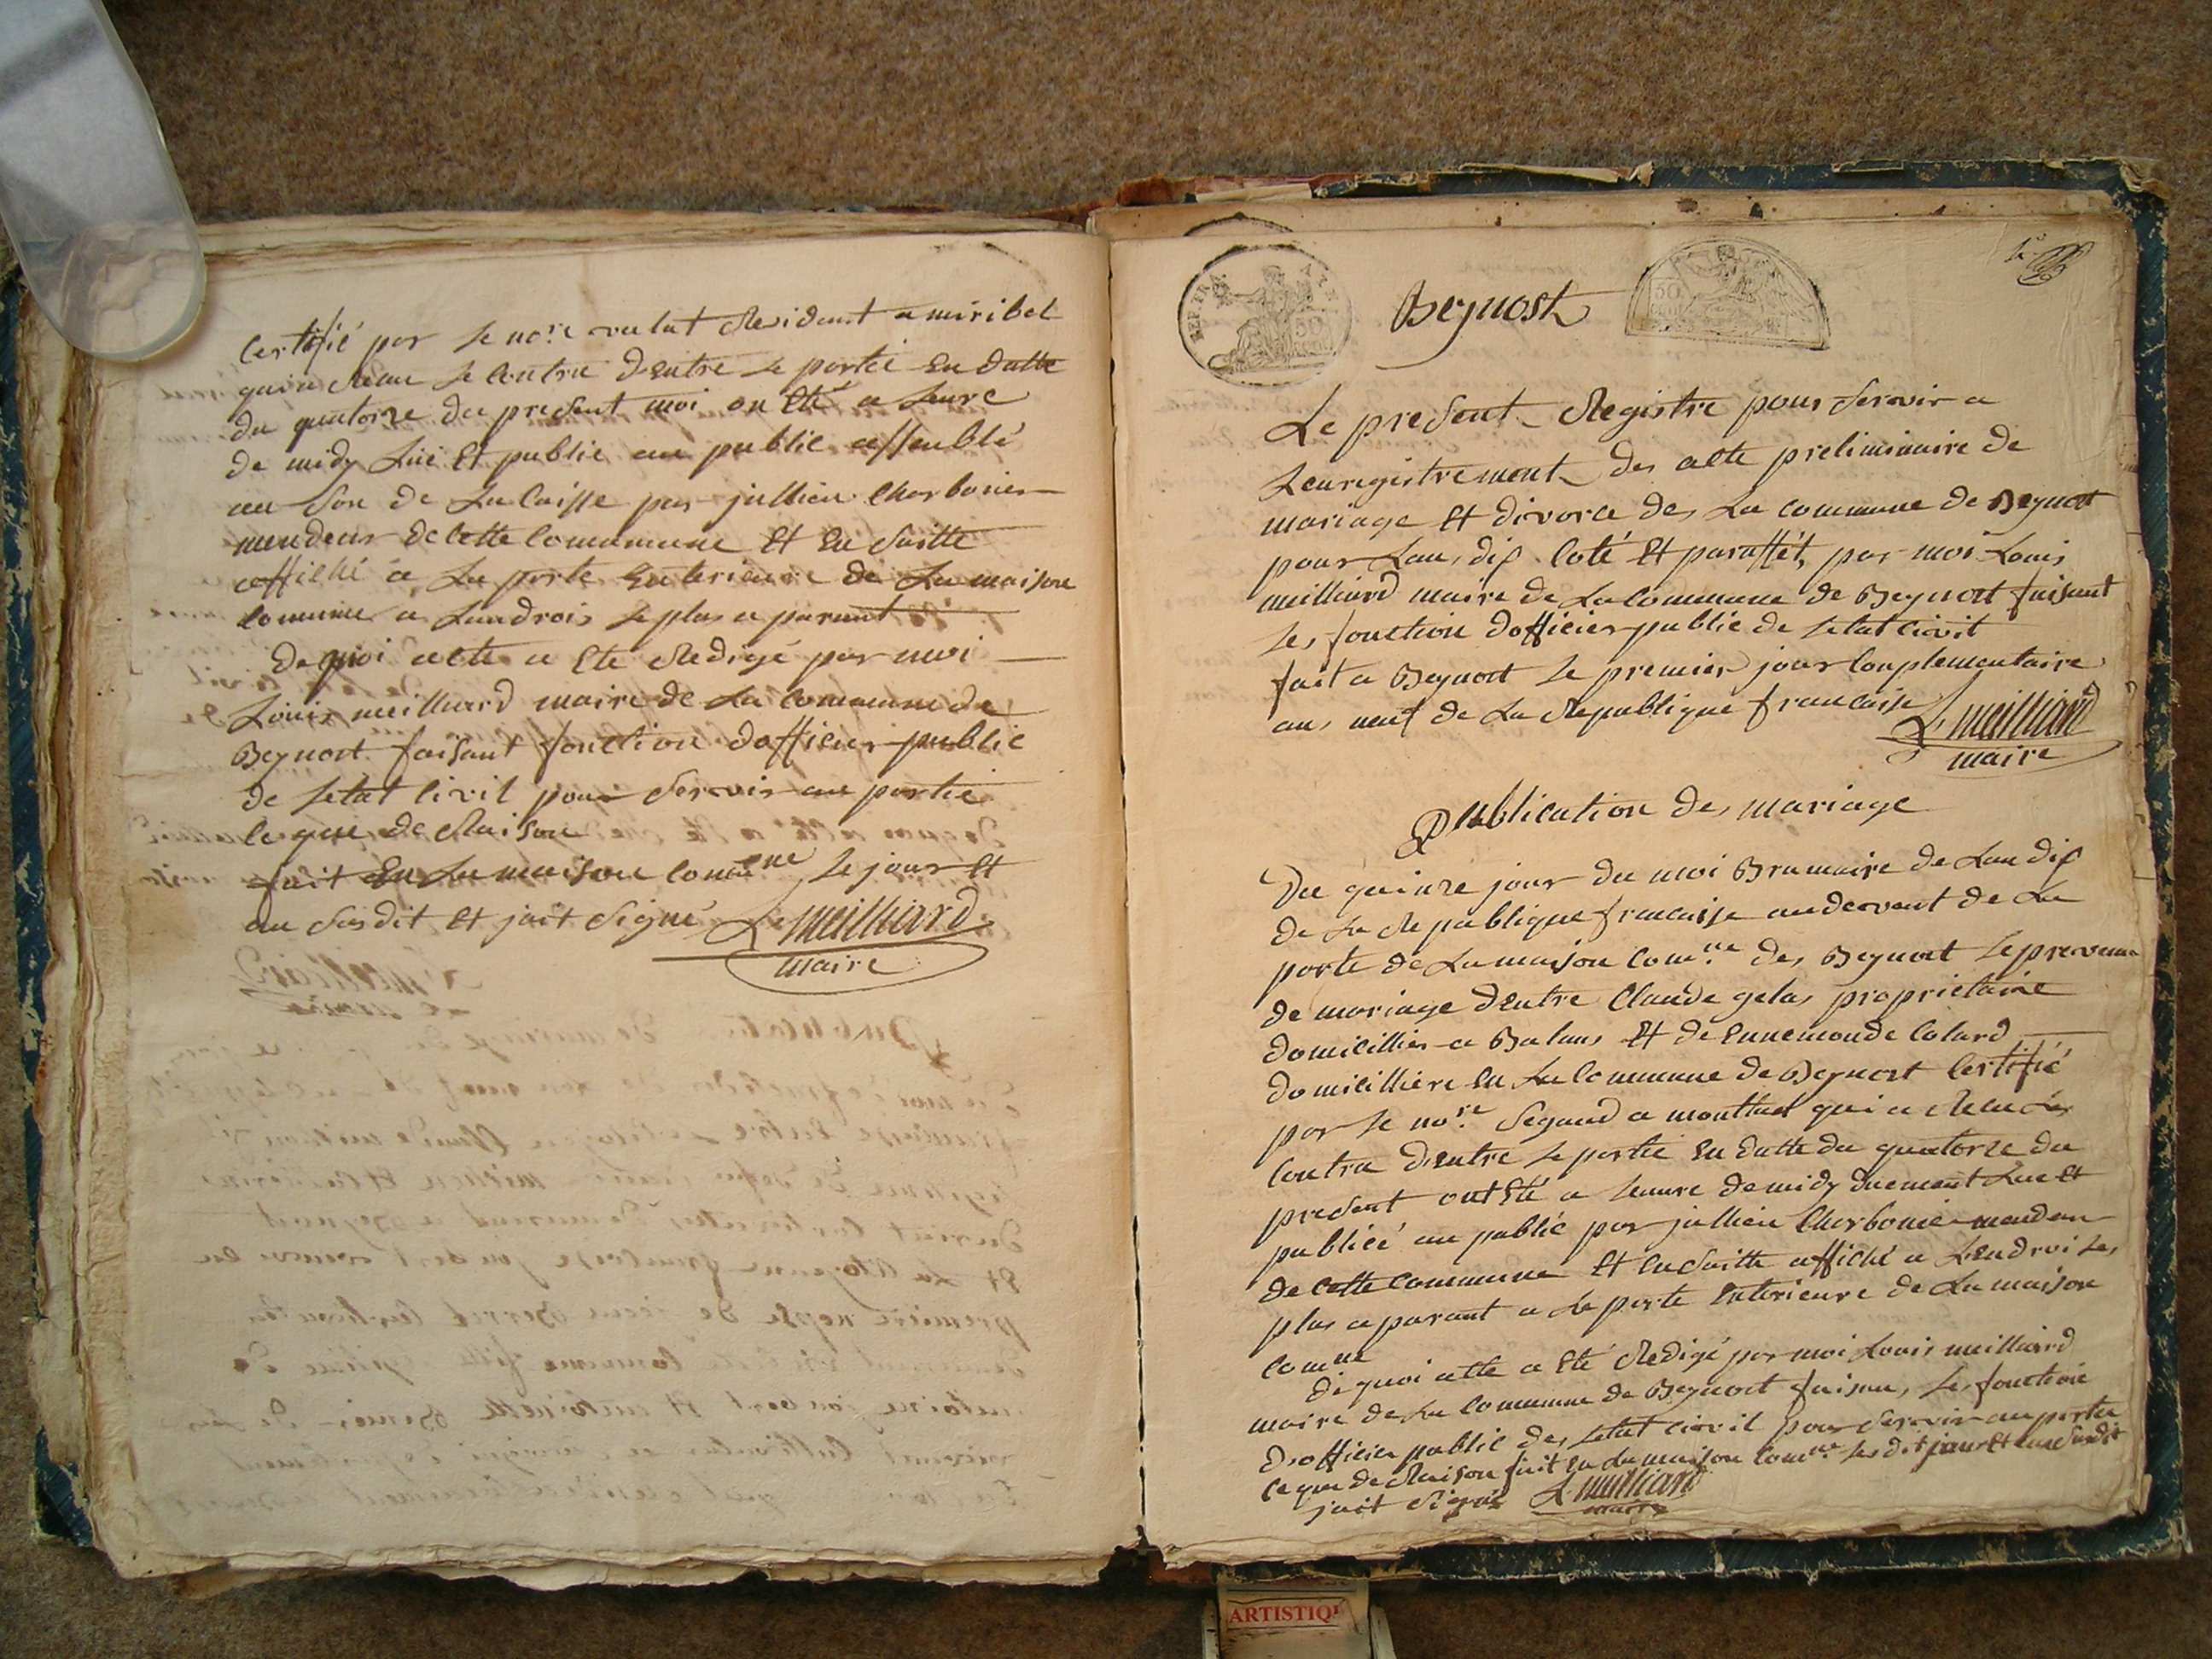 certifié par le no.re residant a miribel
qui a Recu le contra dentre le partié en datte
du quatorze du present moi on été a leure
de midy Lüe Et publié au public assemblé
au son de La Caisse par jullien Charbonier
mendeur de cette Comumune Et En suitte
affiché a La porte Exterieure de La maison
comune a Landrois le plus a parant
De quoi acte a Eté Redigé par moi
Louis meilliard maire de La commune de
Beynost faisant fonction dofficier public
de letat Civil pour servoir au partié
ce que de Raison
fait En La maison comune le jour Et
an susdit Et jait signé L. meilliard
maire
REP. FRA.
50
Beynost
50
1.e
Le present Registre pour servoir a
Lenregistrement des acte preliminaire de
mariage Et divorce des La commune de Beynost
pour Lan dix Coté Et paraffét par moi Louis
meilliard maire de La Commune de Beynost faisant
les fonction dofficier public de letat Civil
fait a Beynost le premier jour Conplementaire
an neuf de La Republique francaise L. meilliard
maire
Publication de mariage
Du quinze jour du moi Brumaire de Lan dix
de La Republique francaise audevant de La
porte de La maison com.ne des Beynost
de mariage dentre Claude gelas proprietaire
domicillier a Balans Et de Ennemonde Colard
domicilliere En La Commune de Beynost Certifié
par le no.re Segaud a montluel qui a Recu Les
Contra dentre le partié En datte du quatorze du
present ont Eté a leuure de midy duement Lue Et
publiéé au public par jullien Charbonier mendeur
de cette commune Et En suitte affiché a Lendroi les
plus a parant a La porte Exterieure de La maison
comne
de quoi acte a Eté Redigé par moi Louis meilliard
maire de La Commune de Beynost faisan les fonction
dofficier public des letat Civil pour servoir au partié
ce que de Raison fait En La maison comne les dit jour Et an susdit
jait signé L. meilliard
maire
ARTISTIQ